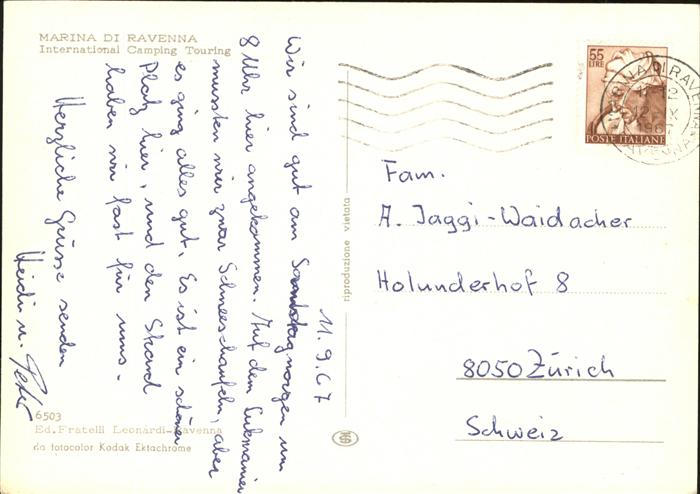 MARINA DI RAVENNA
International Camping Touring
11.9.67
Wir sind gut am Samstagmorgen um
8 Uhr hier angekommen. Auf dem Lukmanier
mussten wir zwar Schneeschaufeln, aber
es ging alles gut. Es ist ein schöner
Platz hier, und den Strand
haben wir fast für uns.
Herzliche Grüsse senden
Heidi u. Peter
6503
Ed. Fratelli Leonardi-Ravenna
da fotocolor Kodak Ektachrome
riproduzione vietata
55
LIRE
POSTE ITALIANE
MARINA DI RAVENNA
1967
Fam.
A. Jaggi-Waidacher
Holunderhof 8
8050 Zürich
Schweiz